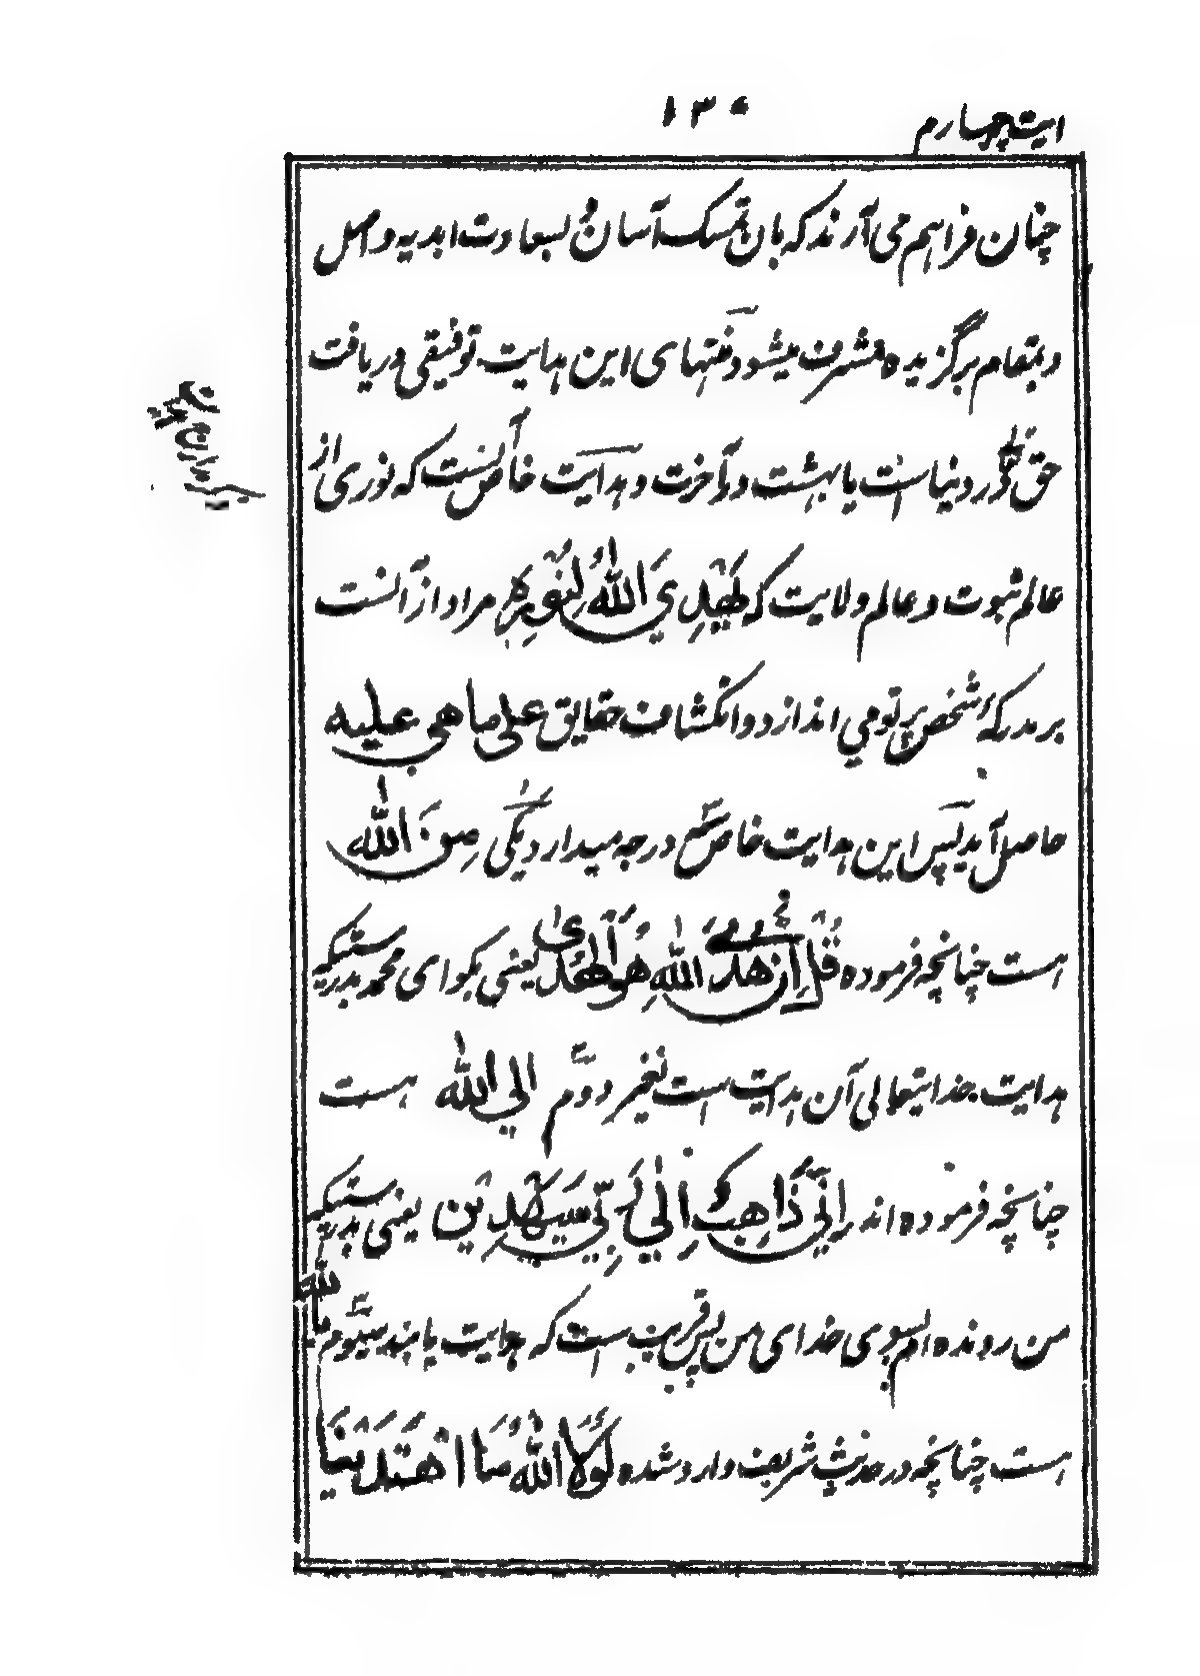 ایت چهارم
۱۳۰
چنان فراهم می آرند که بان تمسک آسان بسعادت ابدیه واصل
و بمقام برگزیده مشرف میشود و منتهای این هدایت توفیقی دریافت
حق در دنیاست یا بهشت در آخرت و هدایت خاص آنست که نوری از
عالم ثبوت و عالم ولایت که یَهْدِی اللهُ لِنُورِهِ مراد از آنست
بر مدرکهٔ شخص پرتو می اندازد و انکشاف حقایق علی ما هی علیه
حاصل آید پس این هدایت خاص سه درجه میدارد یکی مِنَ الله
است چنانچه فرموده قُلْ اِنَّ هُدَی اللهِ هُوَ الْهُدَی یعنی بگو ای محمد بدرستیکه
هدایت خدایتعالی آن هدایت است نه غیر و دوم الی الله است
چنانچه فرموده اند اِنِّی ذَاهِبٌ اِلَی رَبِّی سَیَهْدِین یعنی بدرستیکه
من رونده ام بسوی خدای من پس قریب است که هدایت یابند سیوم بالله
است چنانچه در حدیث شریف وارد شده لَوْلَا اللهُ مَا اهْتَدَیْنَا